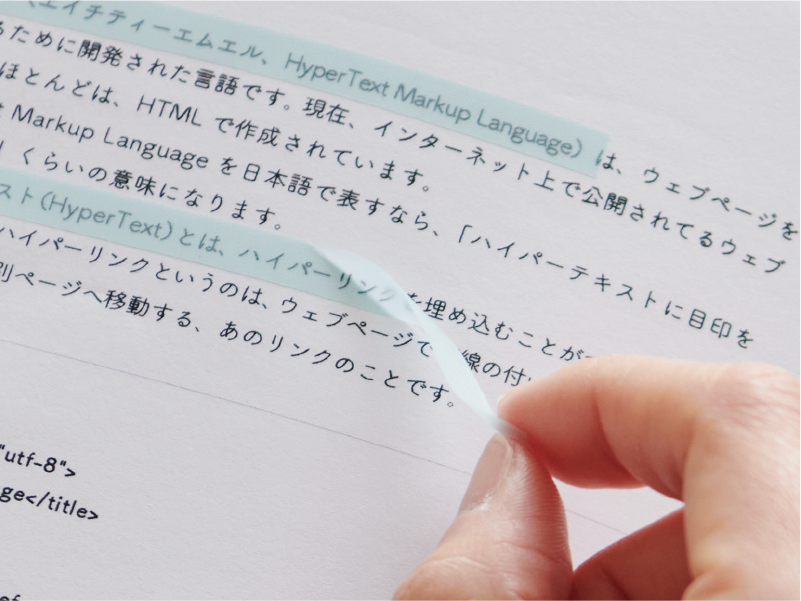 (エイチティーエムエル、HyperText Markup Language) は、ウェブページを
るために開発された言語です。現在、インターネット上で公開されてるウェブ
ほとんどは、HTML で作成されています。
t Markup Language を日本語で表すなら、「ハイパーテキストに目印を
くらいの意味になります。
スト(HyperText)とは、ハイパーリンクを埋め込むことが
ハイパーリンクというのは、ウェブページで 線の付
別ページへ移動する、あのリンクのことです。
"utf-8">
ge</title>